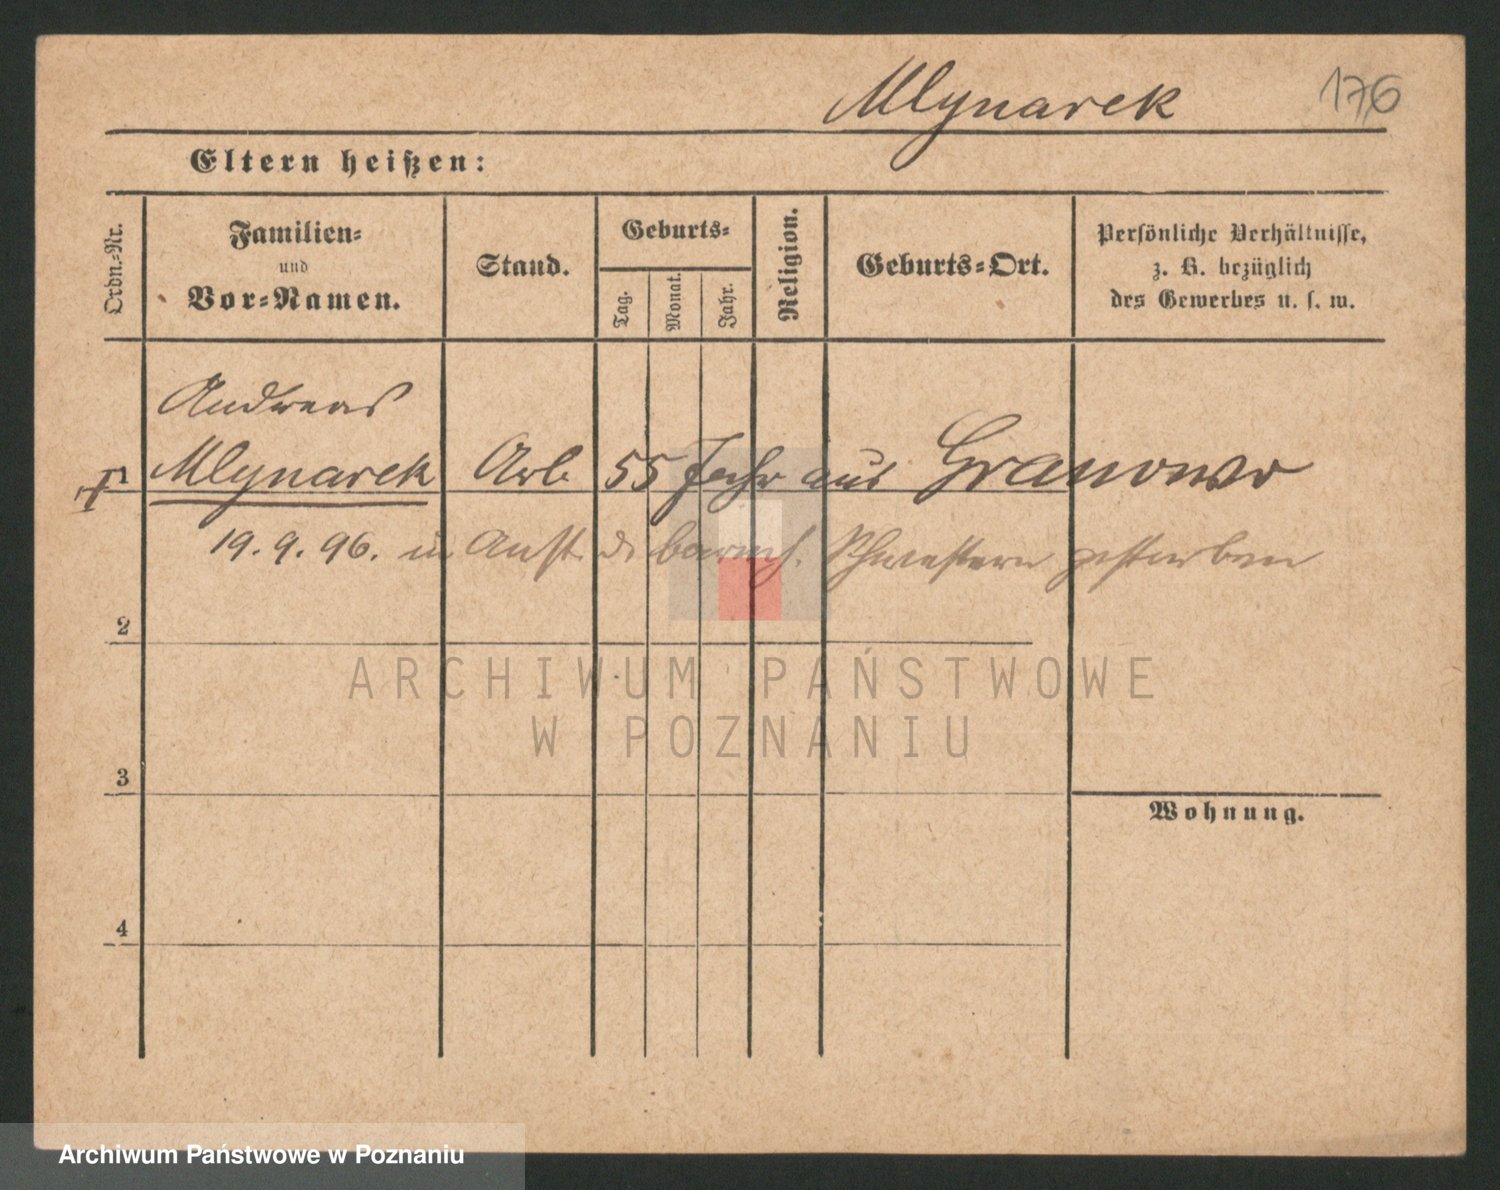 Mlynarek
176
Eltern heißen:
Ordn.-Nr.
Familien-
und
Vor-Namen.
Stand.
Geburts-
Tag.
Monat.
Jahr.
Religion.
Geburts-Ort.
Persönliche Verhältnisse,
z. B. bezüglich
des Gewerbes u. s. w.
Andreas
Mlynarek Arb 55 Jahr aus Granowo
19. 9. 96. in Anst. d. barmh. Schwestern gestorben
2
ARCHIWUM PAŃSTWOWE
W POZNANIU
3
Wohnung.
4
Archiwum Państwowe w Poznaniu